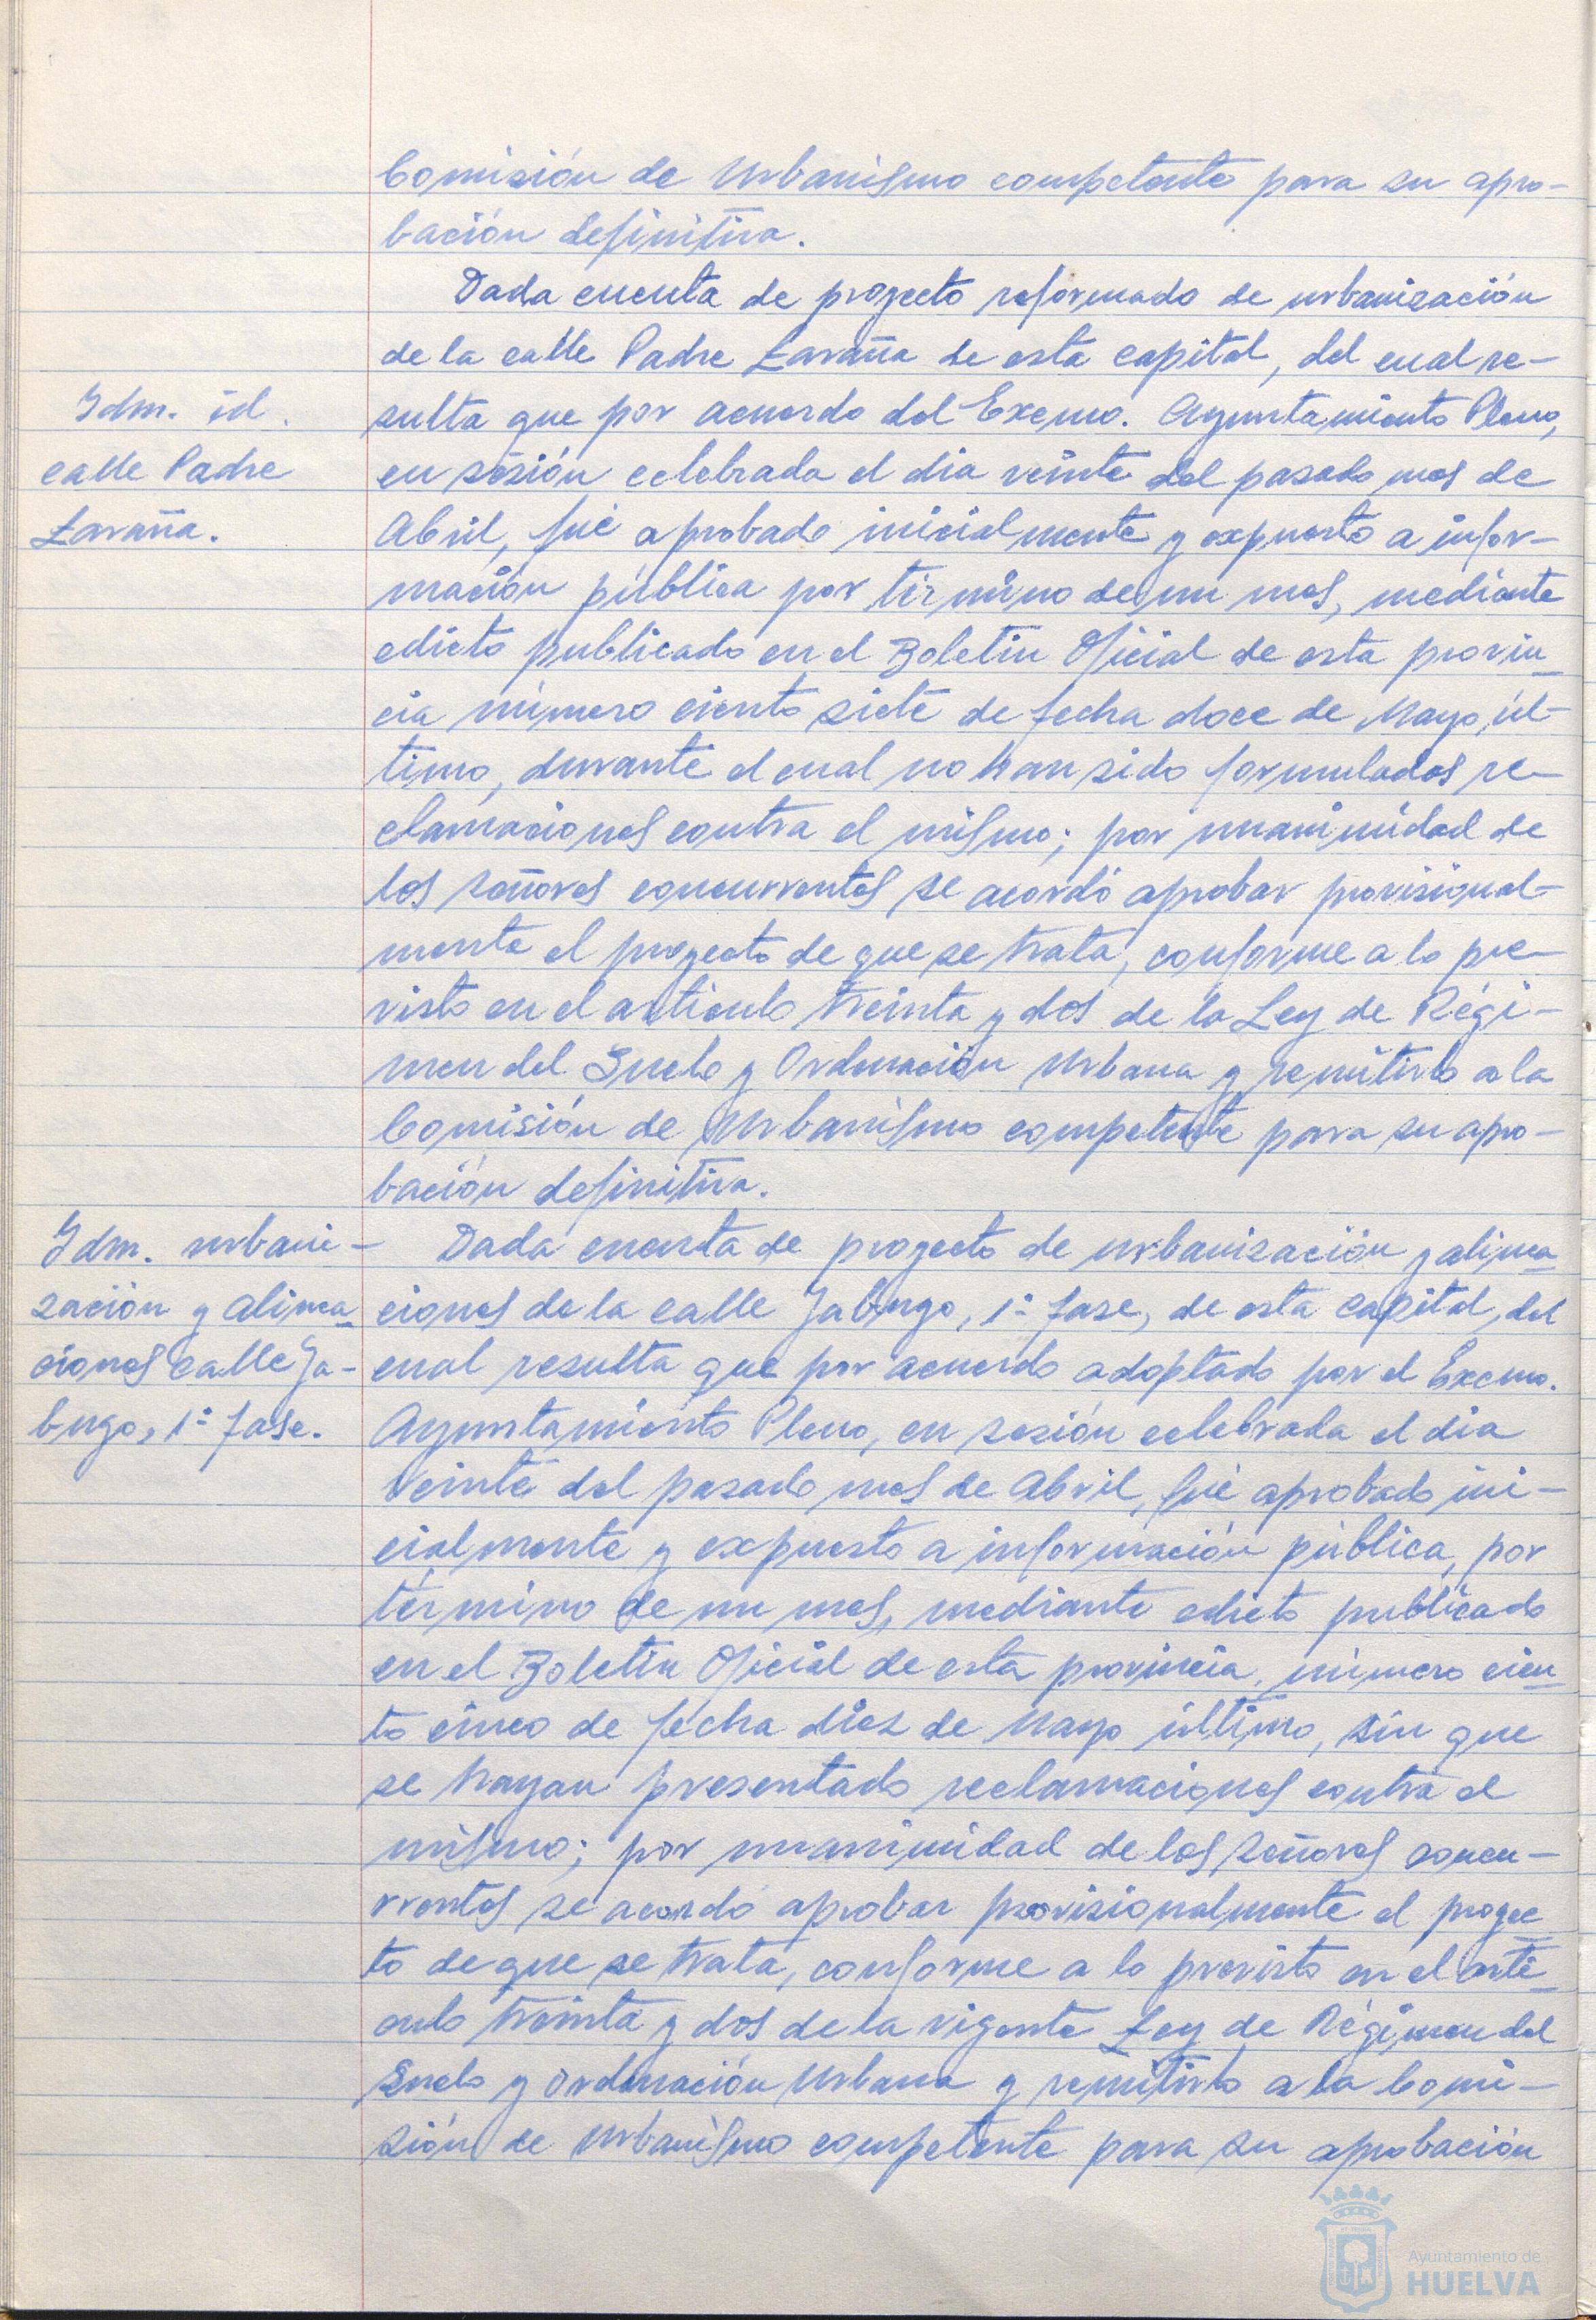 Comisión de Urbanismo competente para su apro-
bación definitiva.
Dada cuenta de proyecto reformado de urbanización
de la calle Padre Laraña de esta capital, del cual re-
Idm. id.
calle Padre
Laraña.
sulta que por acuerdo del Excmo. Ayuntamiento Pleno,
en sesión celebrada el dia veinte del pasado mes de
Abril, fué aprobado inicialmente y expuesto a infor-
mación pública por término de un mes, mediante
edicto publicado en el Boletin Oficial de esta provin
cia número ciento siete de fecha doce de Mayo, úl-
timo, durante el cual no han sido formulados re-
clamaciones contra el mismo; por unanimidad de
los señores concurrentes se acordó aprobar provisional-
mente el proyecto de que se trata, conforme a lo pre-
visto en el articulo treinta y dos de la Ley de Régi-
men del Suelo y Ordenación Urbana y remitirlo a la
Comisión de Urbanismo competente para su apro-
bación definitiva.
Idm. urbani-
zación y alinea
ciones calle Ja-
bugo, 1ª fase.
Dada cuenta de proyecto de urbanización y alinea
ciones de la calle Jabugo, 1ª fase, de esta capital, del
cual resulta que por acuerdo adoptado por el Excmo.
Ayuntamiento Pleno, en sesión celebrada el dia
veinte del pasado mes de Abril, fué aprobado ini-
cialmente y expuesto a información pública, por
término de un mes, mediante edicto publicado
en el Boletin Oficial de esta provincia, número cien
to cinco de fecha diez de Mayo último, sin que
se hayan presentado reclamaciones contra el
mismo; por unanimidad de los señores concu-
rrentes se acordó aprobar provisionalmente el proyec
to de que se trata, conforme a lo previsto en el arti
culo treinta y dos de la vigente Ley de Régimen del
Suelo y Ordenación Urbana y remitirlo a la Comi-
sión de Urbanismo competente para su aprobación
Ayuntamiento de
HUELVA